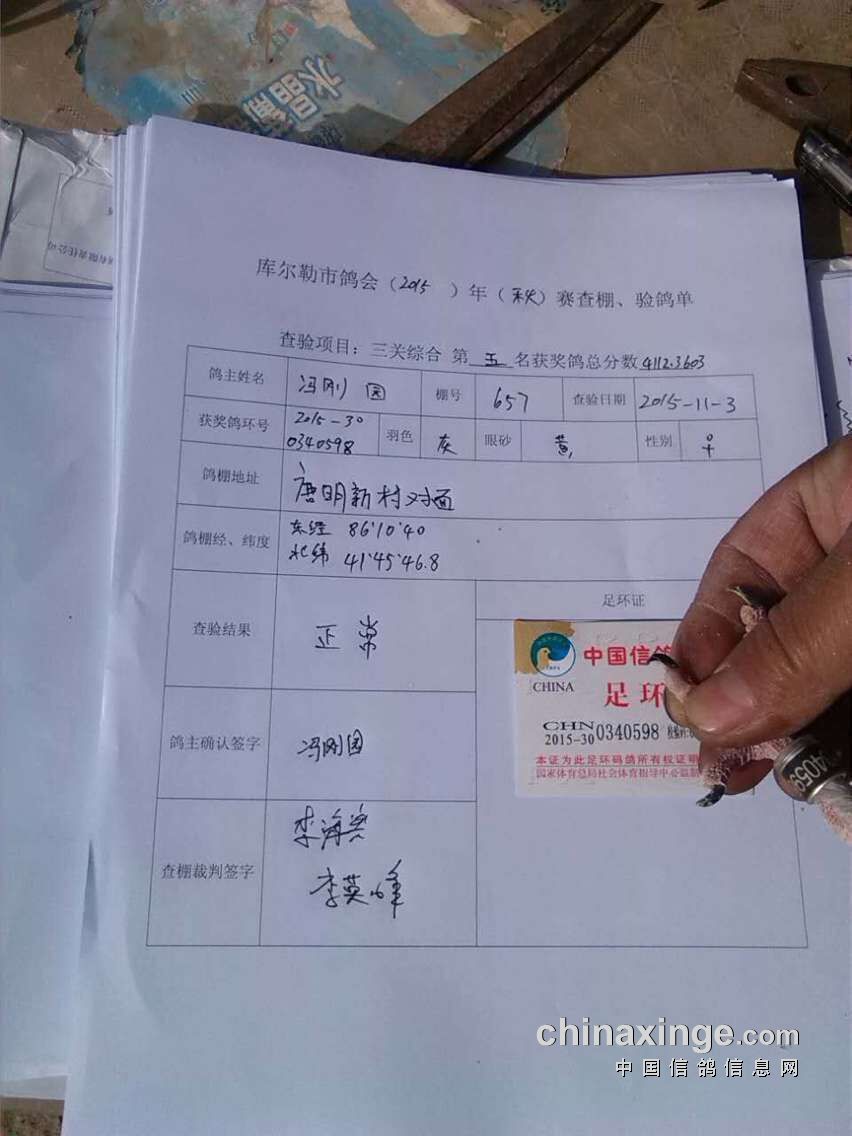 水晶
库尔勒市鸽会（2015 ）年（秋）赛查棚、验鸽单
查验项目：三关综合 第 五 名获奖鸽总分数 4112.3603
鸽主姓名 冯刚园 棚号 657 查验日期 2015-11-3
获奖鸽环号 2015-30 0340598 羽色 灰 眼砂 黄 性别 ♀
鸽棚地址 唐明新村对面
鸽棚经、纬度 东经 86°10'40
北纬 41°45'46.8
查验结果 正常
足环证
中国信鸽
CHINA 足环
CHN
2015-30 0340598
本证为此足环码鸽所有权证明
国家体育总局社会体育指导中心监制
鸽主确认签字 冯刚园
查棚裁判签字
李英峰
chinaxinge.com
中国信鸽信息网